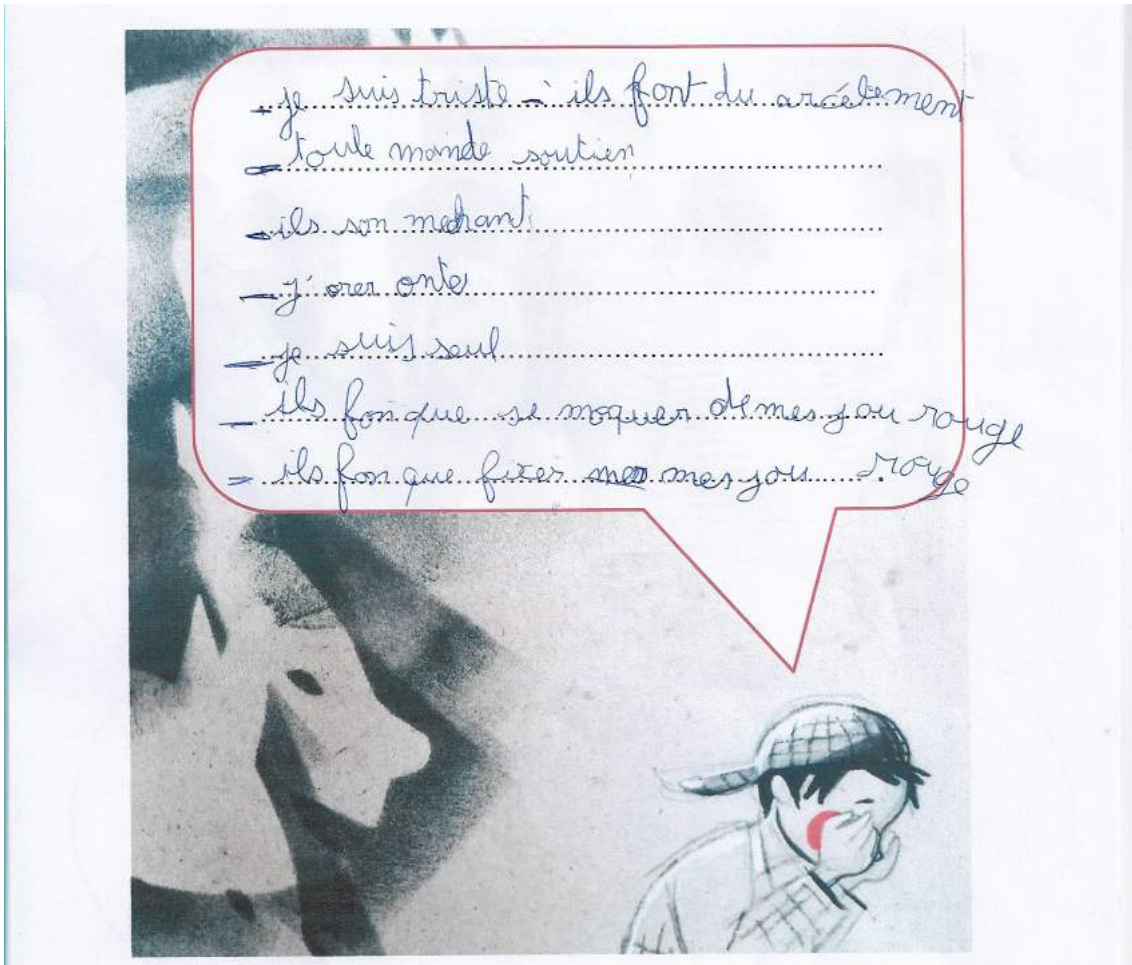 - je suis triste - ils font du arcélement
- toule monde soutien
- ils son mechant
- j'orer onte
- je suis seul
- ils fon que se moquer de mes jou rouge
- ils fon que fixer mes mes jou rouge